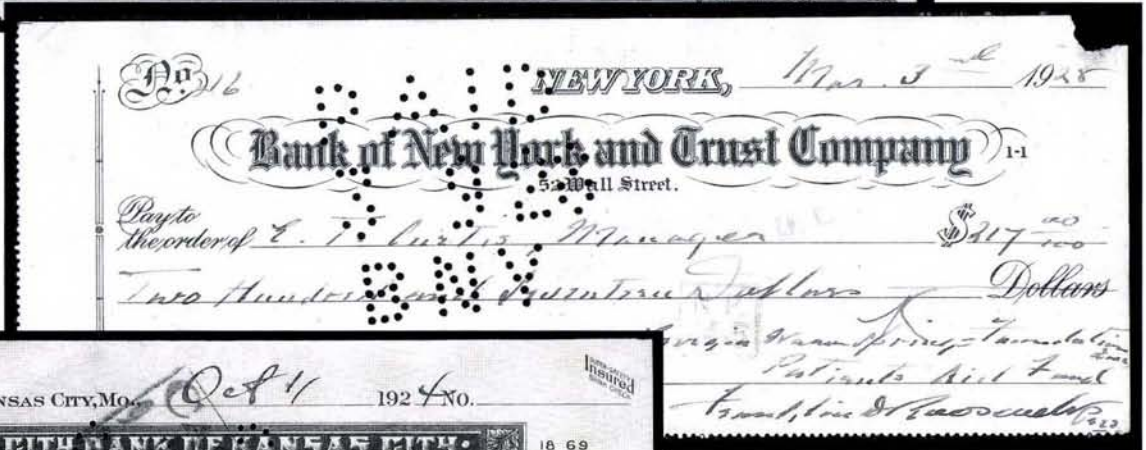 No. 16 NEW YORK, Mar. 3rd 1928
PAID
Bank of New York and Trust Company 1-1
52 Wall Street.
Pay to
the order of E. T. Curtis, Manager $217 00/100
BNY
Two Hundred and Seventeen Dollars Dollars
Georgia Warm Springs Foundation
Patients Aid Fund
Franklin D Roosevelt
NSAS CITY, MO., Oct 11 1924 No.
Insured
CITY BANK OF KANSAS CITY. 18 69